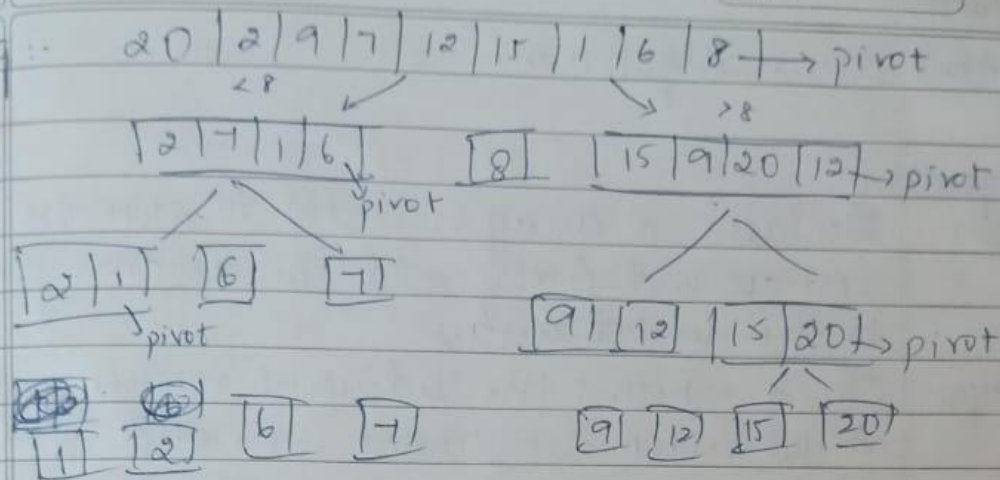 20 | 2 | 9 | 7 | 12 | 15 | 1 | 6 | 8 → pivot
< 8
> 8
2 | 7 | 1 | 6
8
15 | 9 | 20 | 12 → pivot
pivot
2 | 1
6
7
pivot
9
12
15 | 20 → pivot
1
2
6
7
9
12
15
20